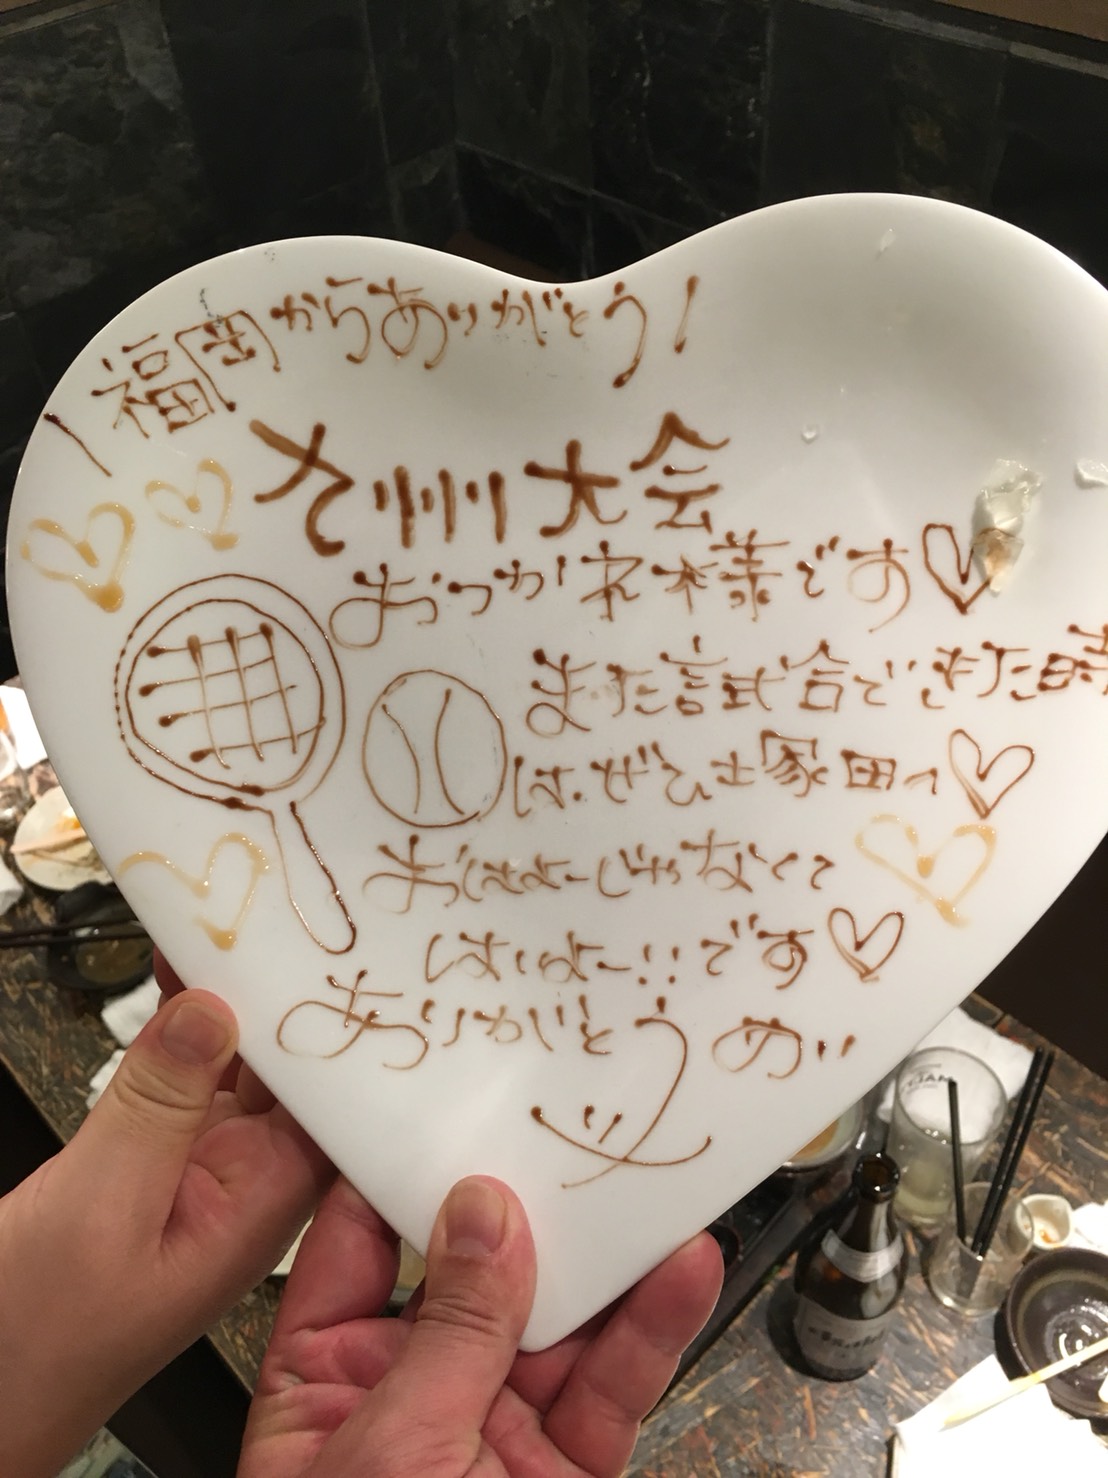 \福岡からありがとう!
九州大会
おつかれ様です♡
また試合できた時
はぜひ土家田へ♡
おはよーじゃなくて
はいよー!!です♡
ありがとう めい